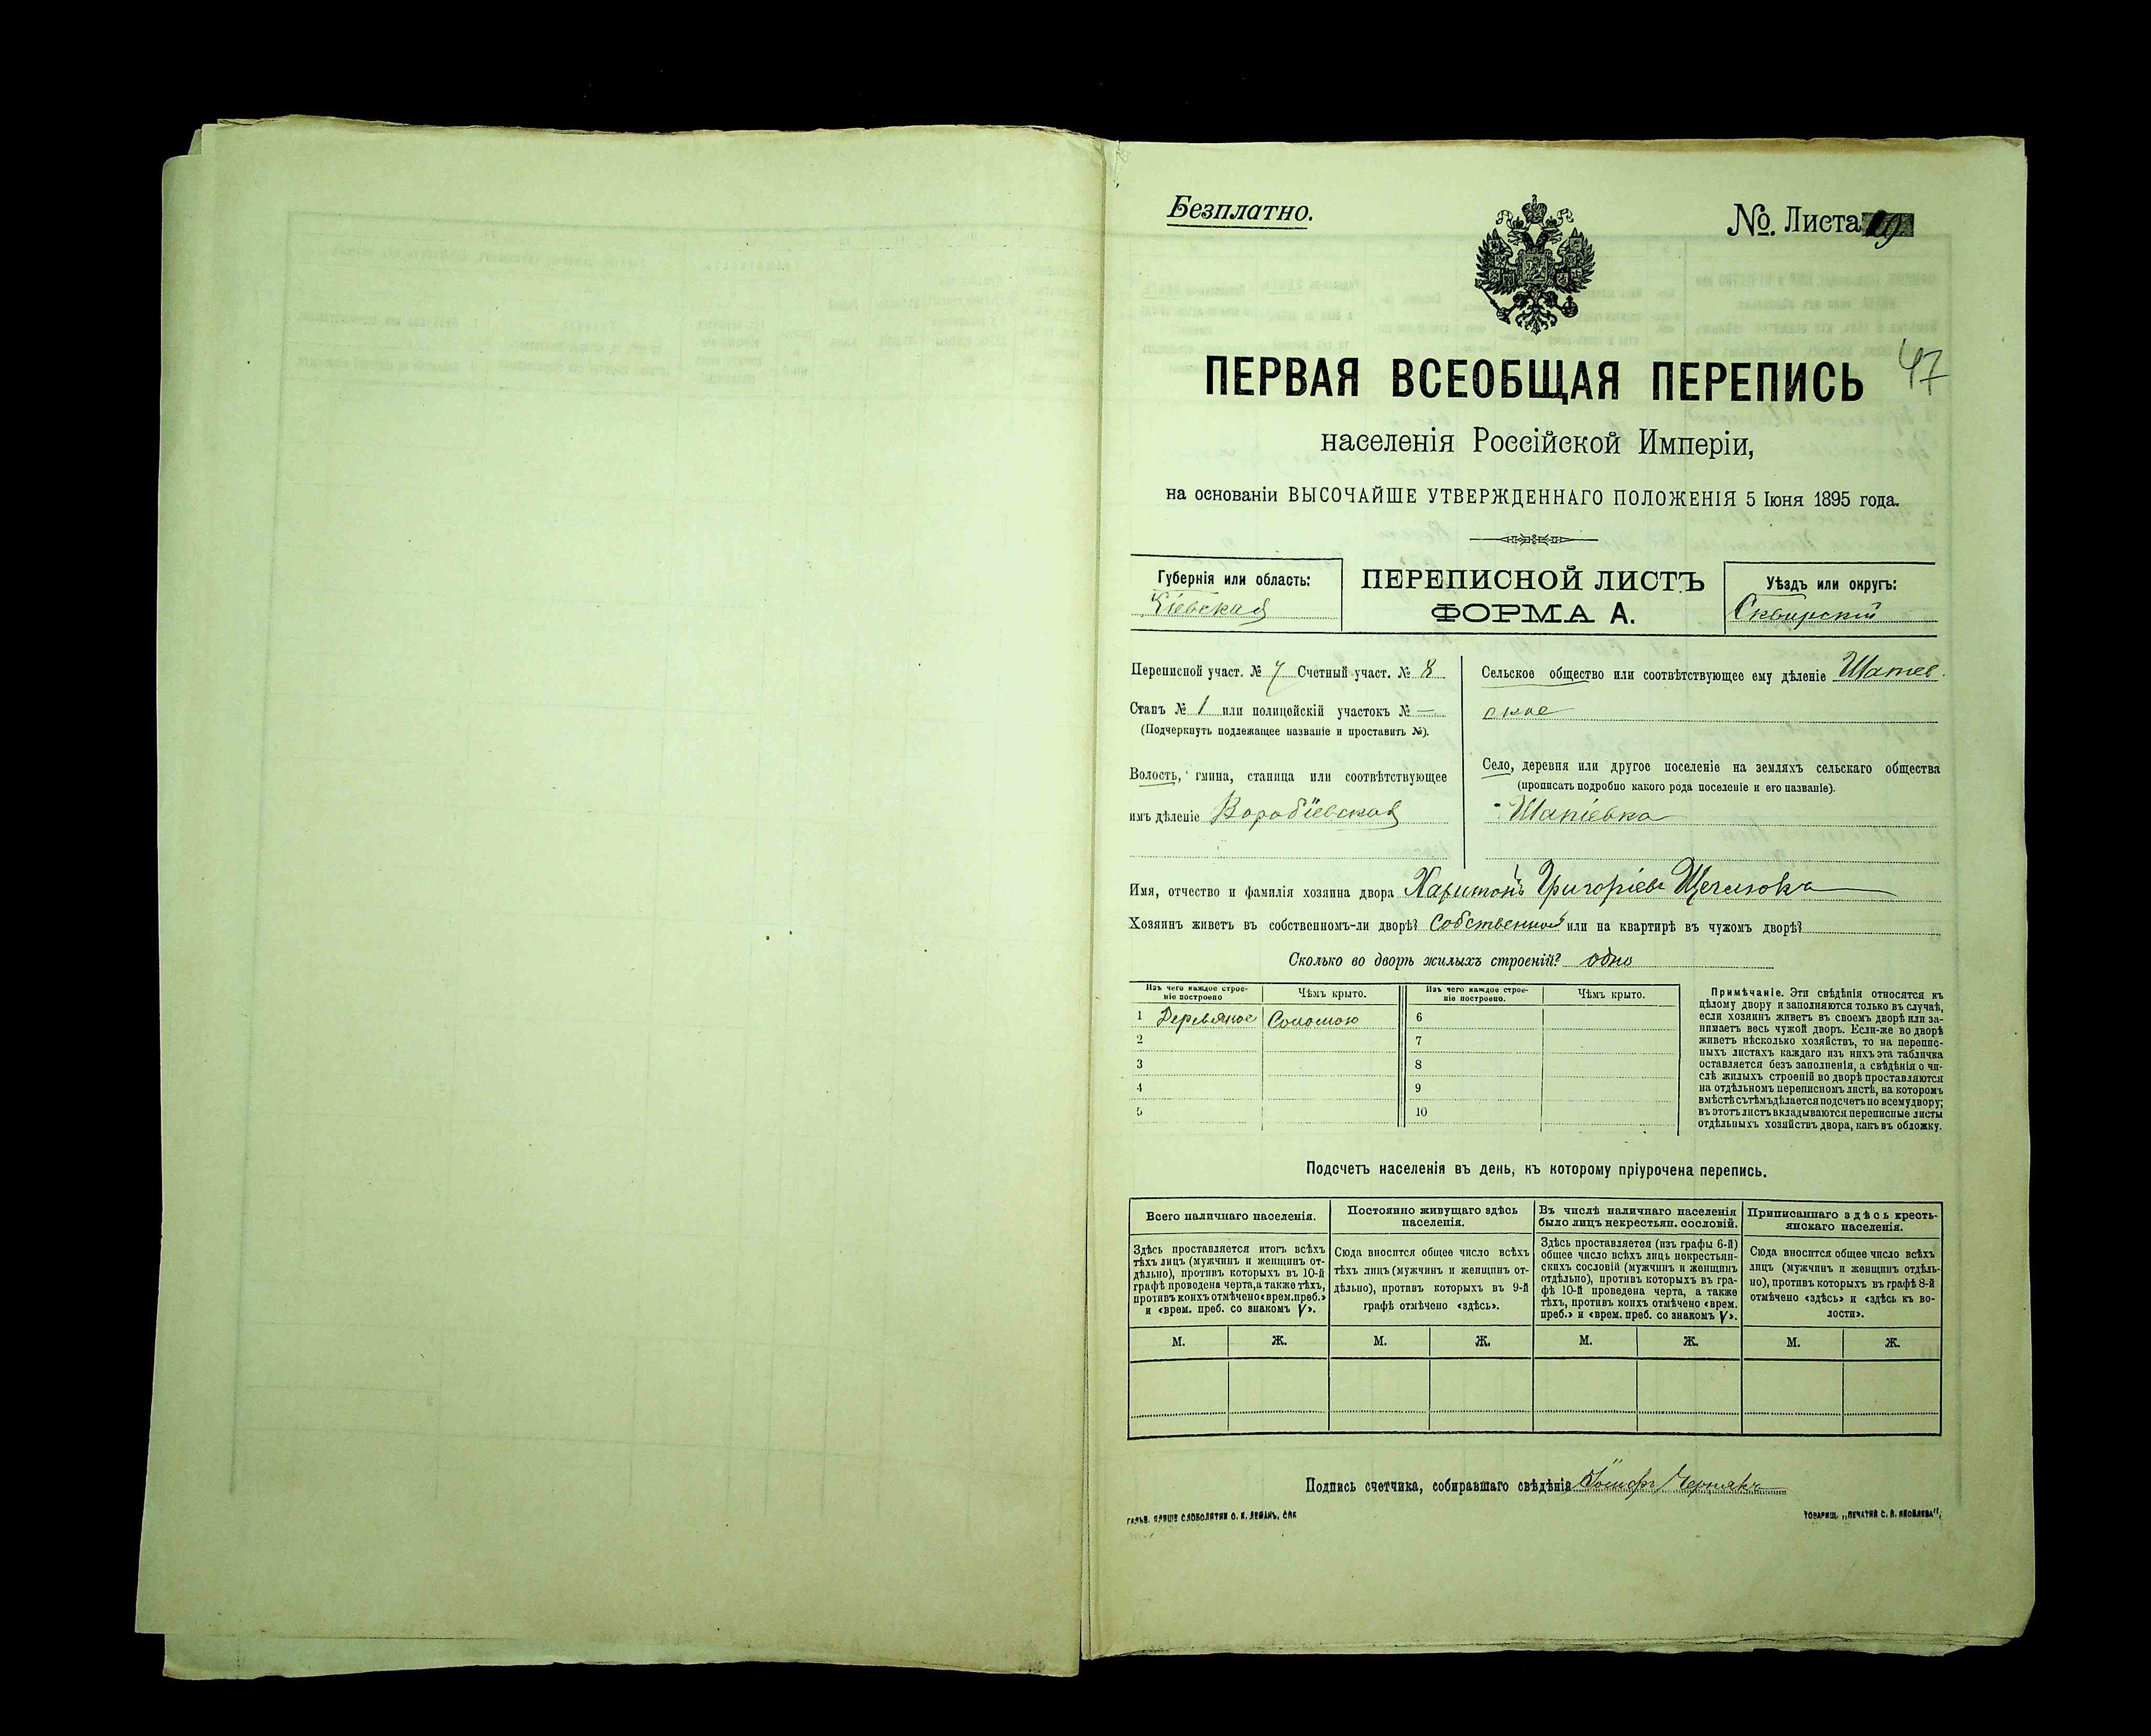 Безплатно.
№. Листа 19
47
ПЕРВАЯ ВСЕОБЩАЯ ПЕРЕПИСЬ
населенія Россійской Имперіи,
на основаніи ВЫСОЧАЙШЕ УТВЕРЖДЕННАГО ПОЛОЖЕНІЯ 5 Іюня 1895 года.
Губернія или область:
Кіевская
ПЕРЕПИСНОЙ ЛИСТЪ
ФОРМА А.
Уѣздъ или округъ:
Сквирскій
Переписной участ. № 7 Счетный участ. № 8
Станъ № 1 или полицейскій участокъ № —
(Подчеркнуть подлежащее названіе и проставить №).
Волость, гмина, станица или соотвѣтствующее
имъ дѣленіе Воробіевская
Сельское общество или соотвѣтствующее ему дѣленіе Шатев
ское
Село, деревня или другое поселеніе на земляхъ сельскаго общества
(прописать подробно какого рода поселеніе и его названіе).
Шапіевка
Имя, отчество и фамилія хозяина двора Харитонъ Григоріевъ
Хозяинъ живетъ въ собственномъ-ли дворѣ? Собственной или на квартирѣ въ чужомъ дворѣ?
Сколько во дворѣ жилыхъ строеній? одно
Изъ чего каждое строе-
ніе построено
Чѣмъ крыто.
Изъ чего каждое строе-
ніе построено.
Чѣмъ крыто.
1 Деревяное Соломою 6
2 7
3 8
4 9
5 10
Примѣчаніе. Эти свѣдѣнія относятся къ
цѣлому двору и заполняются только въ случаѣ,
если хозяинъ живетъ въ своемъ дворѣ или за-
нимаетъ весь чужой дворъ. Если-же во дворѣ
живетъ нѣсколько хозяйствъ, то на перепис-
ныхъ листахъ каждаго изъ нихъ эта табличка
оставляется безъ заполненія, а свѣдѣнія о чи-
слѣ жилыхъ строеній во дворѣ проставляются
на отдѣльномъ переписномъ листѣ, на которомъ
вмѣстѣ съ тѣмъ дѣлается подсчетъ по всему двору;
въ этотъ листъ вкладываются переписные листы
отдѣльныхъ хозяйствъ двора, какъ въ обложку.
Подсчетъ населенія въ день, къ которому пріурочена перепись.
Всего наличнаго населенія.
Здѣсь проставляется итогъ всѣхъ
тѣхъ лицъ (мужчинъ и женщинъ от-
дѣльно), противъ которыхъ въ 10-й
графѣ проведена черта, а также тѣхъ,
противъ коихъ отмѣчено «врем. преб.»
и «врем. преб. со знакомъ V».
Постоянно живущаго здѣсь
населенія.
Сюда вносится общее число всѣхъ
тѣхъ лицъ (мужчинъ и женщинъ от-
дѣльно), противъ которыхъ въ 9-й
графѣ отмѣчено «здѣсь».
Въ числѣ наличнаго населенія
было лицъ некрестьян. сословій.
Здѣсь проставляется (изъ графы 6-й)
общее число всѣхъ лицъ некрестьян-
скихъ сословій (мужчинъ и женщинъ
отдѣльно), противъ которыхъ въ гра-
фѣ 10-й проведена черта, а также
тѣхъ, противъ коихъ отмѣчено «врем.
преб.» и «врем. преб. со знакомъ V».
Приписаннаго здѣсь кресть-
янскаго населенія.
Сюда вносится общее число всѣхъ
лицъ (мужчинъ и женщинъ отдѣль-
но), противъ которыхъ въ графѣ 8-й
отмѣчено «здѣсь» и «здѣсь къ во-
лости».
М. Ж. М. Ж. М. Ж. М. Ж.
Подпись счетчика, собиравшаго свѣдѣнія Іосифъ Чернякъ
ТОВАРИЩ. „ПЕЧАТНЯ С. П. ЯКОВЛЕВА“.